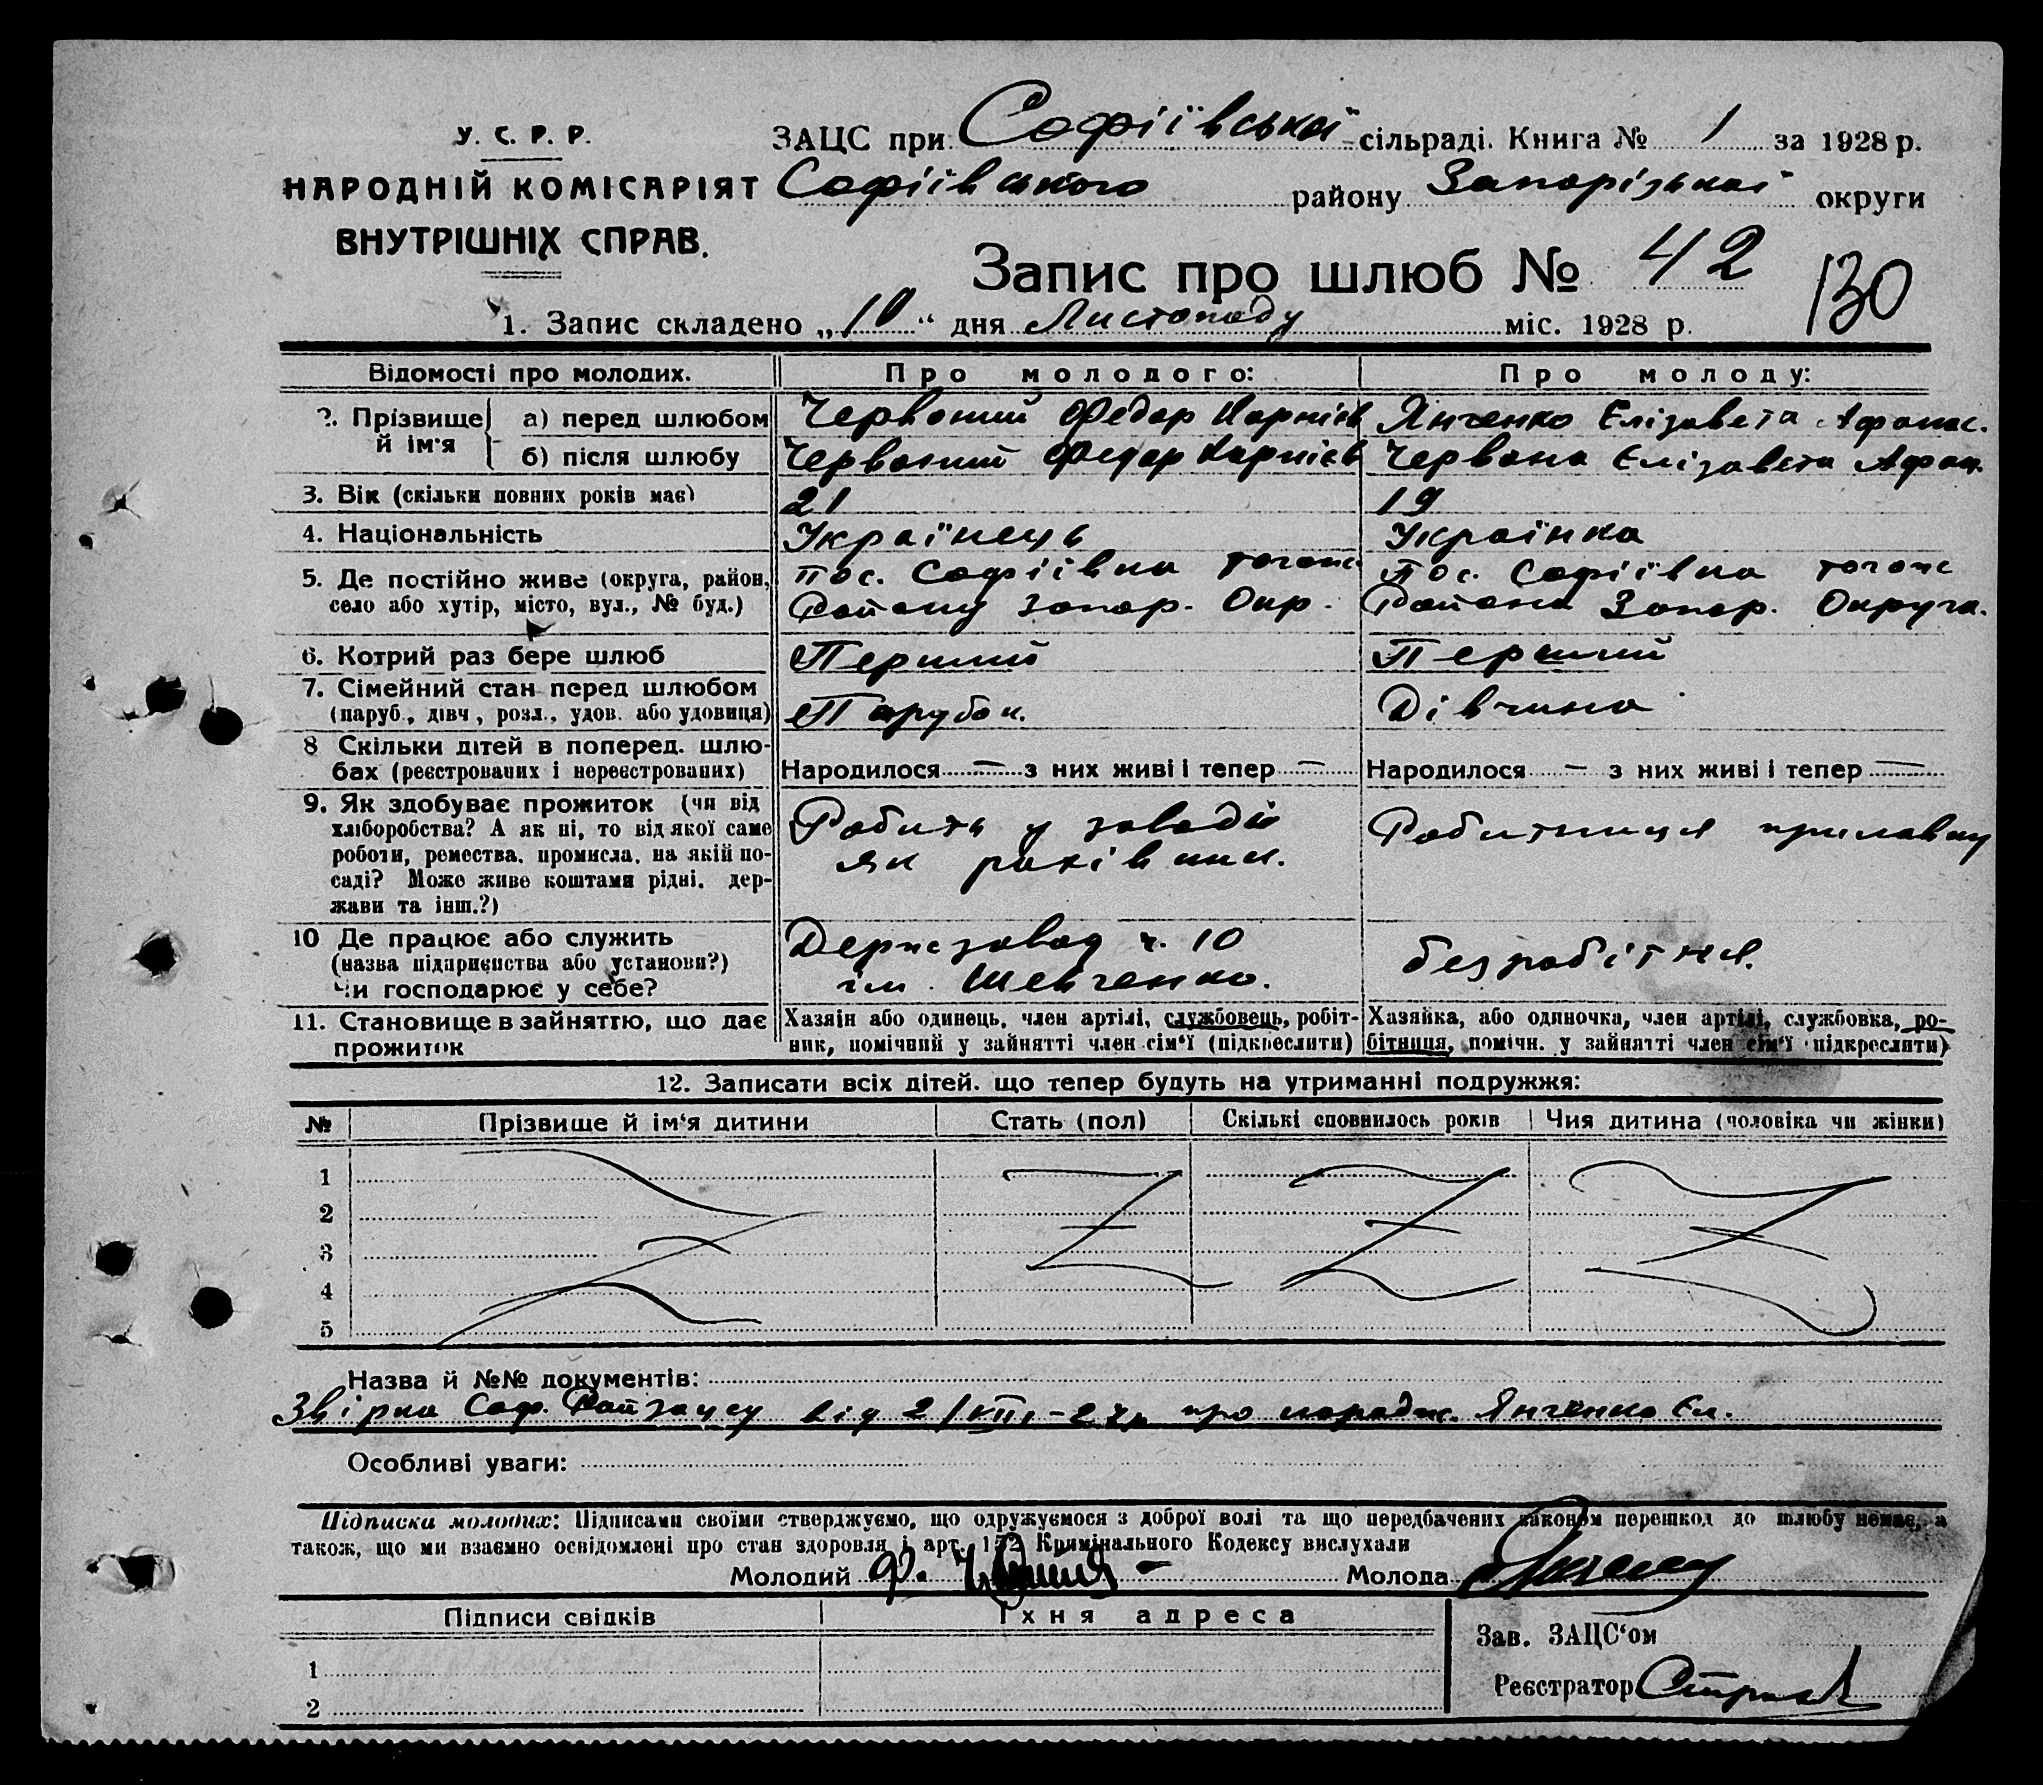 У. С. Р. Р.
НАРОДНІЙ КОМІСАРІЯТ
ВНУТРІШНІХ СПРАВ.
ЗАЦС при Софіївської сільраді. Книга № 1 за 1928 р.
Софіївського району Запорізької округи
Запис про шлюб № 42
130
1. Запис складено „10“ дня Листопаду міс. 1928 р.
Відомості про молодих. Про молодого: Про молоду:
2. Прізвище й ім'я а) перед шлюбом Червоний Федор Карпієв Янченко Єлізавета Афанас.
б) після шлюбу Червоний Федор Карпієв Червона Єлізавета Афан.
3. Вік (скільки повних років має) 21 19
4. Національність Українець Українка
5. Де постійно живе (округа, район, село або хутір, місто, вул., № буд.) пос. Софіївка тогож Району Запор. Окр. пос. Софіївка тогож Района Запор. Округа.
6. Котрий раз бере шлюб Перший Перший
7. Сімейний стан перед шлюбом (паруб., дівч., розл., удов. або удовиця) Парубок. Дівчина
8 Скільки дітей в поперед. шлюбах (реєстрованих і нереєстрованих) Народилося — з них живі і тепер — Народилося — з них живі і тепер —
9. Як здобуває прожиток (чи від хліборобства? А як ні, то від якої саме роботи, ремества, промисла, на якій посаді? Може живе коштами рідні, держави та інш.?) Робить у заводі як Робітниця
10 Де працює або служить (назва підприємства або установи?) Чи господарює у себе? Держзавод ч. 10 ім. Шевченко. безробітня.
11. Становище в зайняттю, що дає прожиток Хазяін або одинець, член артілі, службовець, робітник, помічний у зайнятті член сім'ї (підкреслити) Хазяйка, або одиночка, член артілі, службовка, робітниця, помічн. у зайнятті член сім'ї (підкреслити)
12. Записати всіх дітей, що тепер будуть на утриманні подружжя:
№ Прізвище й ім'я дитини Стать (пол) Скількі сповнилось років Чия дитина (чоловіка чи жінки)
1
2
3
4
5
Назва й №№ документів:
Звірка Соф. Райзацсу від про народж. Янченко Єл.
Особливі уваги:
Підписка молодих: Підписами своїми стверджуємо, що одружуємося з доброї волі та що передбачених законом перешкод до шлюбу немає, а
також, що ми взаємно освідомлені про стан здоровля і арт. 152 Кримінального Кодексу вислухали
Молодий Ф. Молода
Підписи свідків Їхня адреса
Зав. ЗАЦС'ом
1
Реєстратор
2